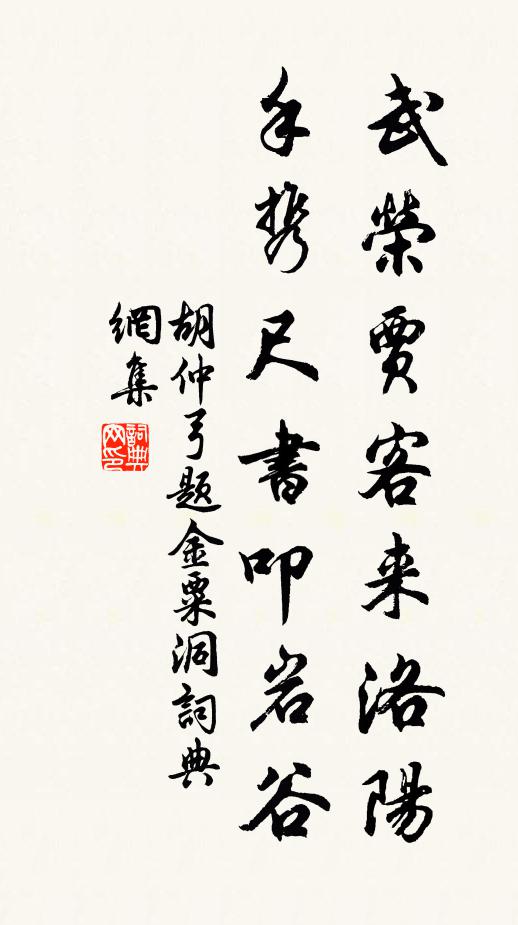 武榮賈客来洛陽
手携尺書叩岩谷
胡仲弓题金粟洞詞典
網集
詞典网印